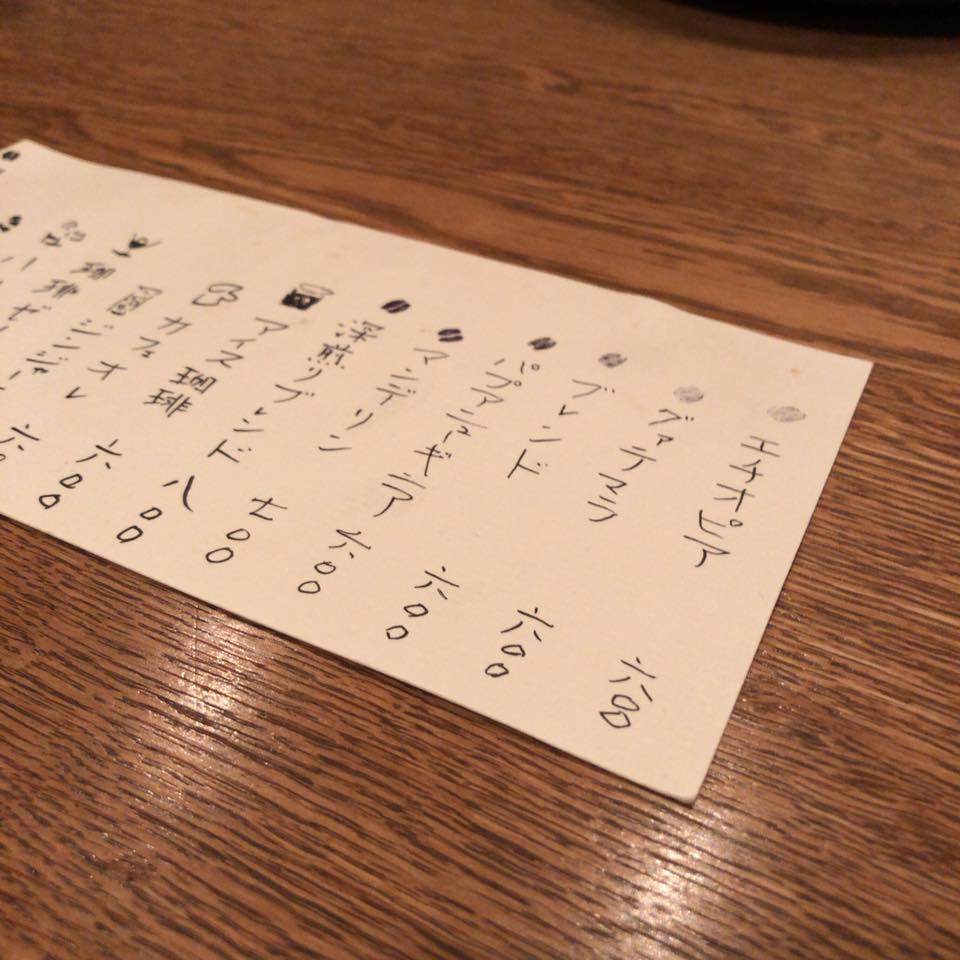 エチオピア 六〇〇
グァテマラ 六〇〇
ブレンド 六〇〇
パプアニューギニア 六〇〇
マンデリン 七〇〇
深煎りブレンド 八〇〇
アイス珈琲 六〇〇
カフェオレ 六〇
珈琲ジンジャー